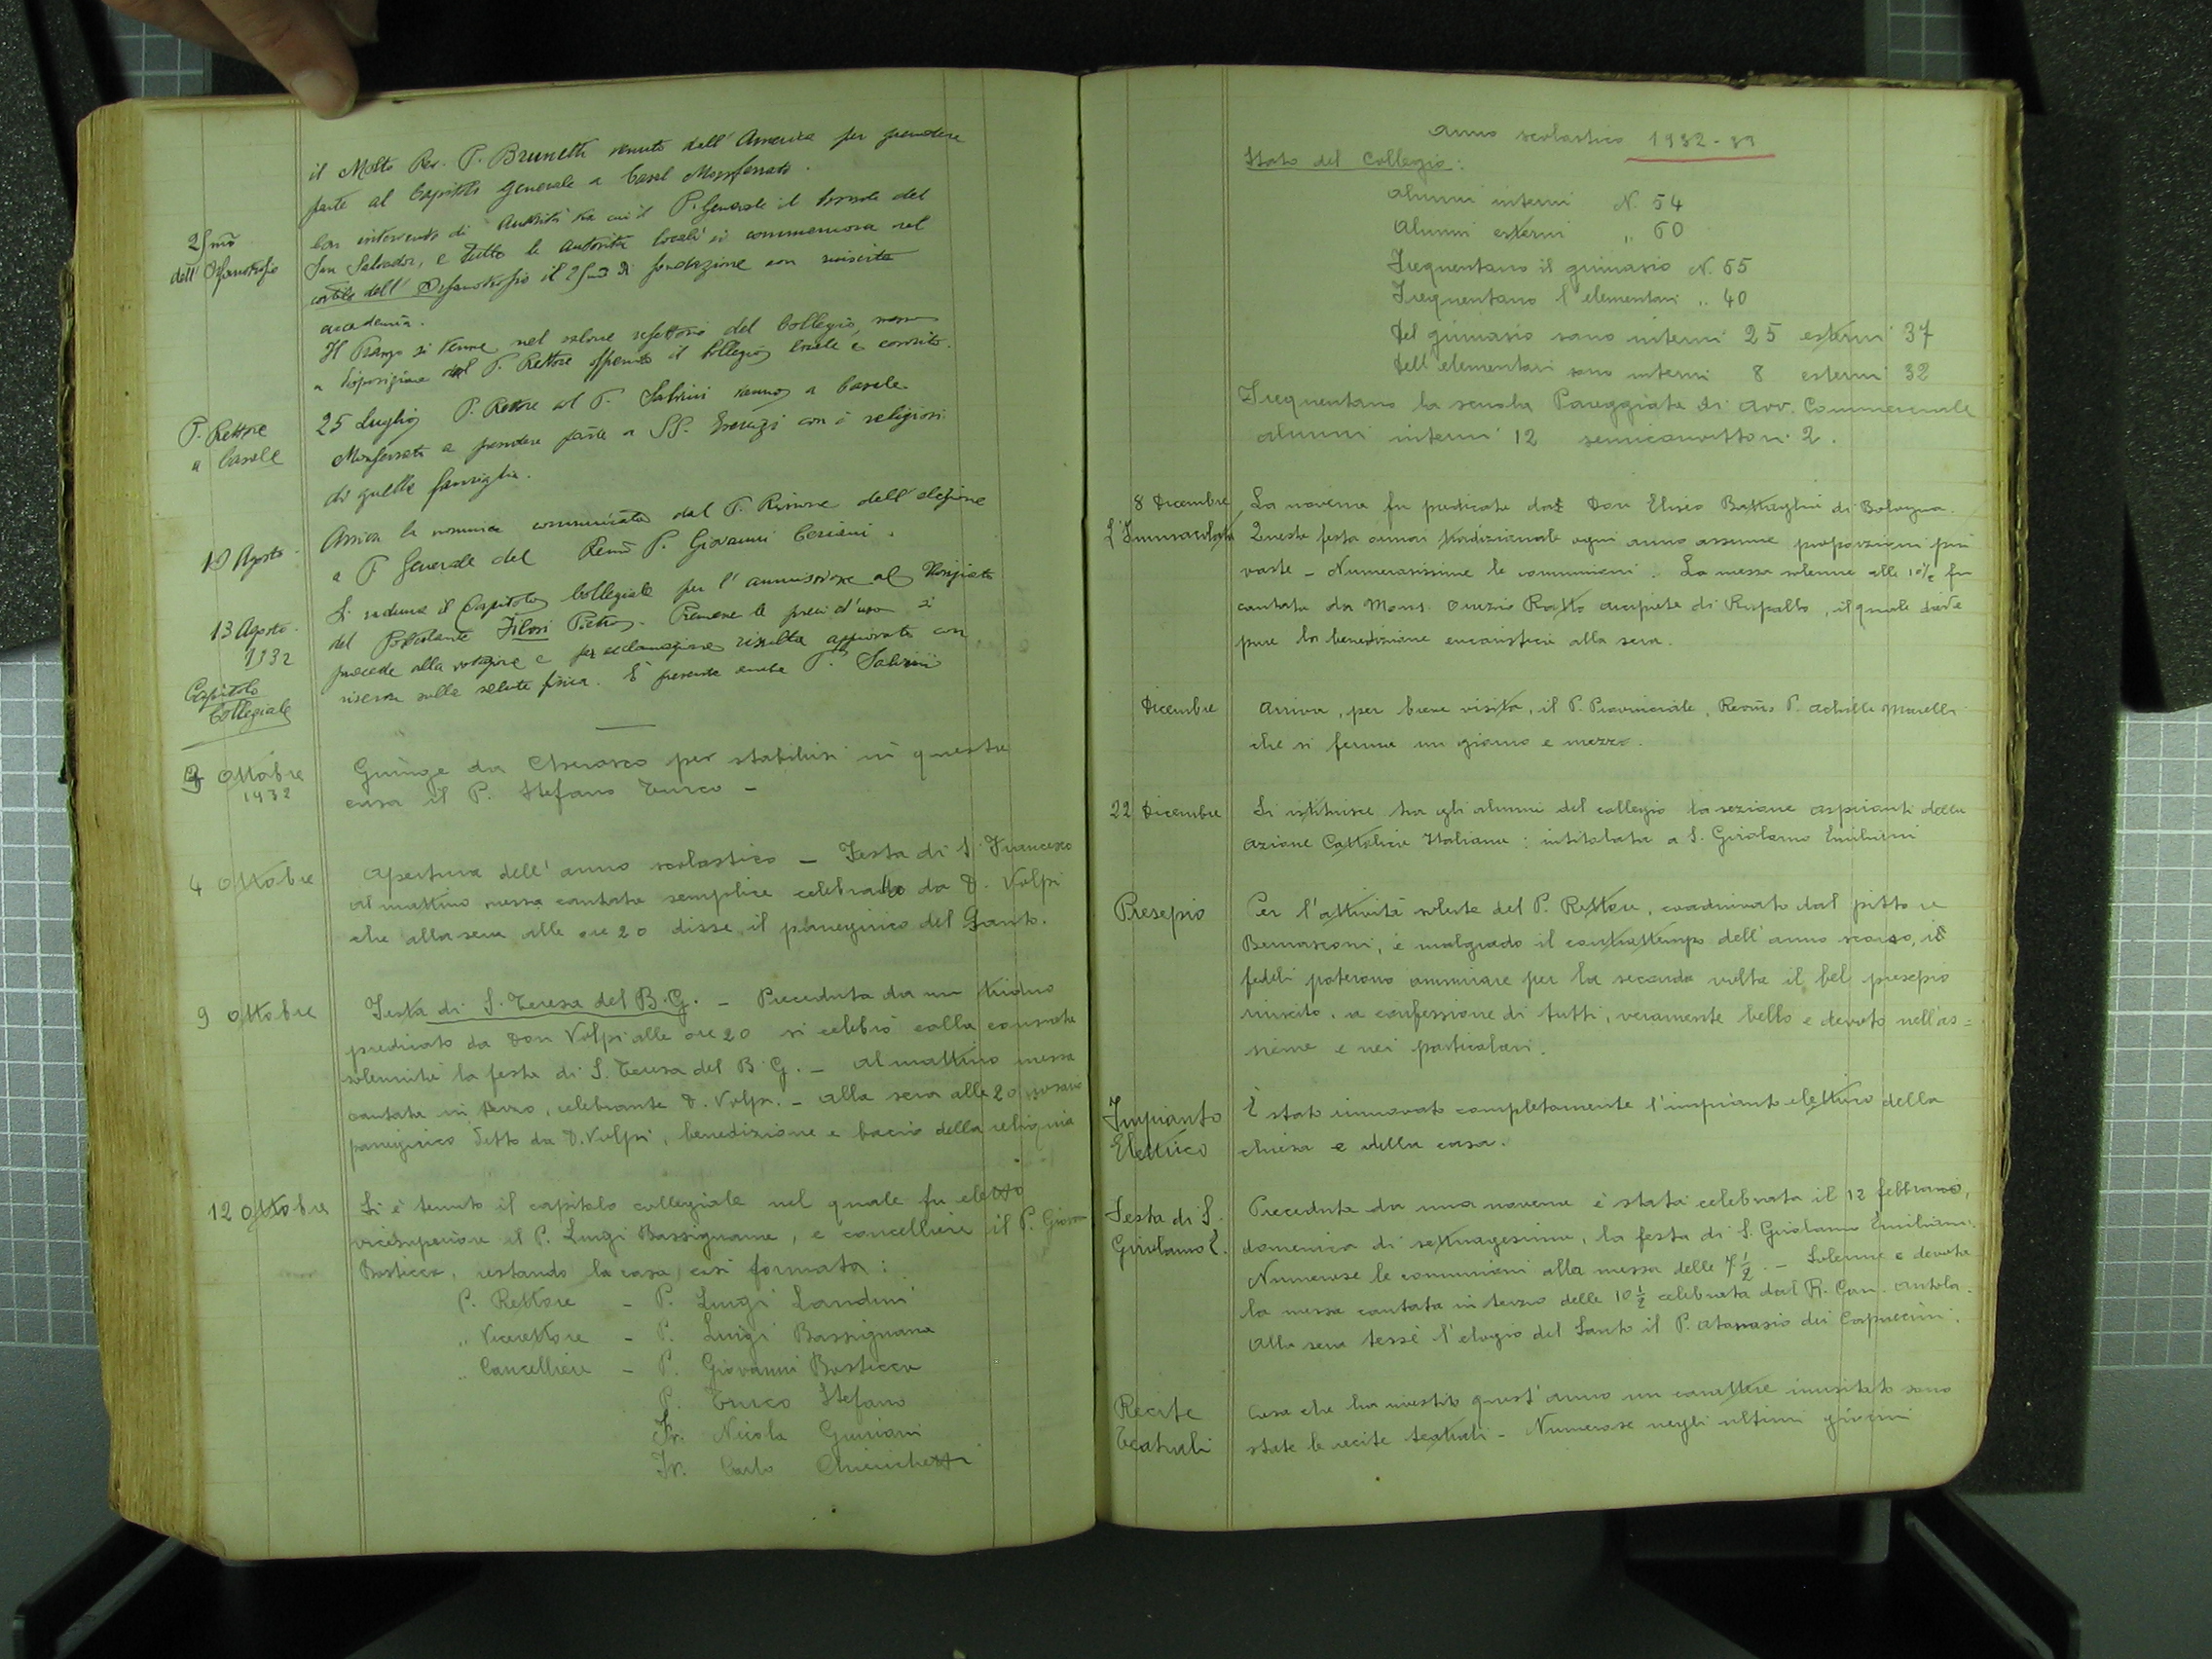 il Molto Rev. P. Brunetti venuto dall'America per prendere
parte al Capitolo Generale a Casal Monferrato.
25mo
dell'Orfanotrofio
Con intervento di Autorità tra cui il P. Generale il Console del
San Salvador, e tutte le autorità locali si commemora nel
cortile dell'Orfanotrofio il 25mo di fondazione con riuscita
accademia.
Il Pranzo si tenne nel salone refettorio del Collegio, messo
a disposizione dal P. Rettore offrendo il Collegio locale e
P. Rettore
a Casale
25 Luglio P. Rettore ed P. Salvini vanno a Casale
Monferrato a prendere parte a SS. Esercizi con i religiosi
di quella famiglia.
10 Agosto
Arriva la nomina comunicata dal P. dell'elezione
a P. Generale del Rev.mo P. Giovanni Ceriani.
13 Agosto
1932
Capitolo
Collegiale
Si raduna il Capitolo Collegiale per l'ammissione al
del Postulante Filosi Pietro. Premesse le preci d'uso si
procede alla votazione e per acclamazione risulta approvato con
riserva sulla salute fisica. È presente anche P. Salvini
2 Ottobre
1932
Giunge da Cherasco per stabilirsi in questa
casa il P. Stefano Turco -
4 Ottobre
Apertura dell'anno scolastico - Festa di S. Francesco
Al mattino messa cantata semplice celebrata da D. Volpi
che alla sera alle ore 20 disse il panegirico del Santo.
9 Ottobre
Festa di S. Teresa del B. G. - Preceduta da un triduo
predicato da Don Volpi alle ore 20 si celebrò colla consueta
solennità la festa di S. Teresa del B. G. - Al mattino messa
cantata in terzo, celebrante D. Volpi. - Alla sera alle 20 rosario
panegirico detto da D. Volpi, benedizione e bacio della reliquia
12 Ottobre
Si è tenuto il capitolo collegiale nel quale fu eletto
vicesuperiore il P. Luigi Bassignana, e cancelliere il P. Giovanni
Bosticca, restando la casa così formata:
P. Rettore - P. Luigi Landini
„ Vicerettore - P. Luigi Bassignana
„ Cancelliere - P. Giovanni Bosticca
P. Turco Stefano
Fr. Nicola
Fr. Carlo
Anno scolastico 1932-33
Stato del Collegio:
Alunni interni N. 54
Alunni esterni „ 60
Frequentano il ginnasio N. 65
Frequentano l'elementari „ 40
Del ginnasio sono interni 25 esterni 37
Dell'elementari sono interni 8 esterni 32
Frequentano la scuola Pareggiata di Avv. Commerciale
alunni interni 12 semiconvittori 2.
8 Dicembre
L'Immacolata
La novena fu predicata dal Don Eliseo Battaglini di Bologna.
Questa festa ormai tradizionale ogni anno assume proporzioni più
vaste - Numerosissime le comunioni. La messa solenne alle 10½ fu
cantata da Mons. Orazio Ratto arciprete di Rapallo, il quale diede
pure la benedizione eucaristica alla sera.
Dicembre
Arriva, per breve visita, il P. Provinciale, Rev.mo P. Achille Marelli
che si ferma un giorno e mezzo.
22 Dicembre
Si istituisce tra gli alunni del collegio la sezione aspiranti della
Azione Cattolica Italiana: intitolata a S. Girolamo Emiliani
Presepio
Per l'attività solerte del P. Rettore, coadiuvato dal pittore
Bernasconi, e malgrado il contrattempo dell'anno scorso, i
fedeli poterono ammirare per la seconda volta il bel presepio
riuscito, a confessione di tutti, veramente bello e devoto nell'as=
sieme e nei particolari.
Impianto
Elettrico
È stato rinnovato completamente l'impianto elettrico della
chiesa e della casa.
Festa di S.
Girolamo E.
Preceduta da una novena è stata celebrata il 12 febbraio,
domenica di settuagesima, la festa di S. Girolamo Emiliani.
Numerose le comunioni alla messa delle 7½. - Solenne e devota
la messa cantata in terzo delle 10½ celebrata dal R. Can. Antola.
Alla sera tessé l'elogio del Santo il P. Atanasio dei Cappuccini.
Recite
Teatrali
Cosa che ha rivestito quest'anno un carattere inusitato sono
state le recite teatrali - Numerose negli ultimi giorni